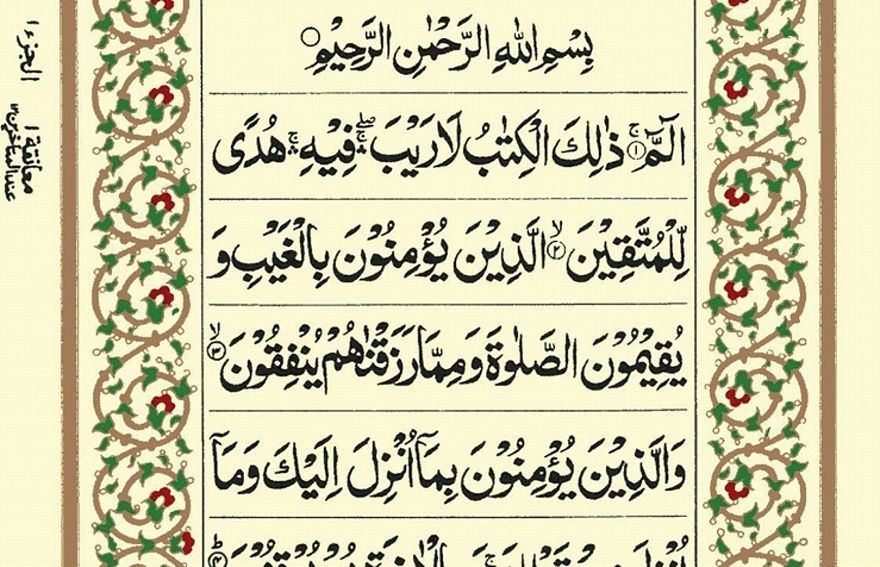 بِسْمِ اللهِ الرَّحْمٰنِ الرَّحِيْمِ○
الٓمّٓ ۚ﴿۱﴾ ذٰلِكَ الْكِتٰبُ لَا رَيْبَ ۛۖ فِيْهِ ۛۚ هُدًى
لِّلْمُتَّقِيْنَ ۙ﴿۲﴾ الَّذِيْنَ يُؤْمِنُوْنَ بِالْغَيْبِ وَ
يُقِيْمُوْنَ الصَّلٰوةَ وَمِمَّا رَزَقْنٰهُمْ يُنْفِقُوْنَ ۙ﴿۳﴾
وَالَّذِيْنَ يُؤْمِنُوْنَ بِمَآ اُنْزِلَ اِلَيْكَ وَمَآ
الجزء ۱
معانقة ۱
عند المتاخرين ۱۲